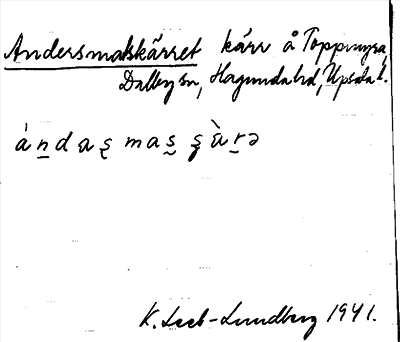 Andersmatskärret kärr å Toppmyra,
Dalby sn, Hagunda hd, Upsala l.
àndas̨ mas̰ s̨ὰrə
K. Leeb-Lundberg 1941.